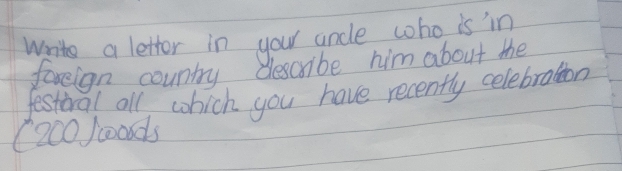 Write a letter in your uncle who is in
foreign country describe him about the
festival all which you have recently celebration
(200) words